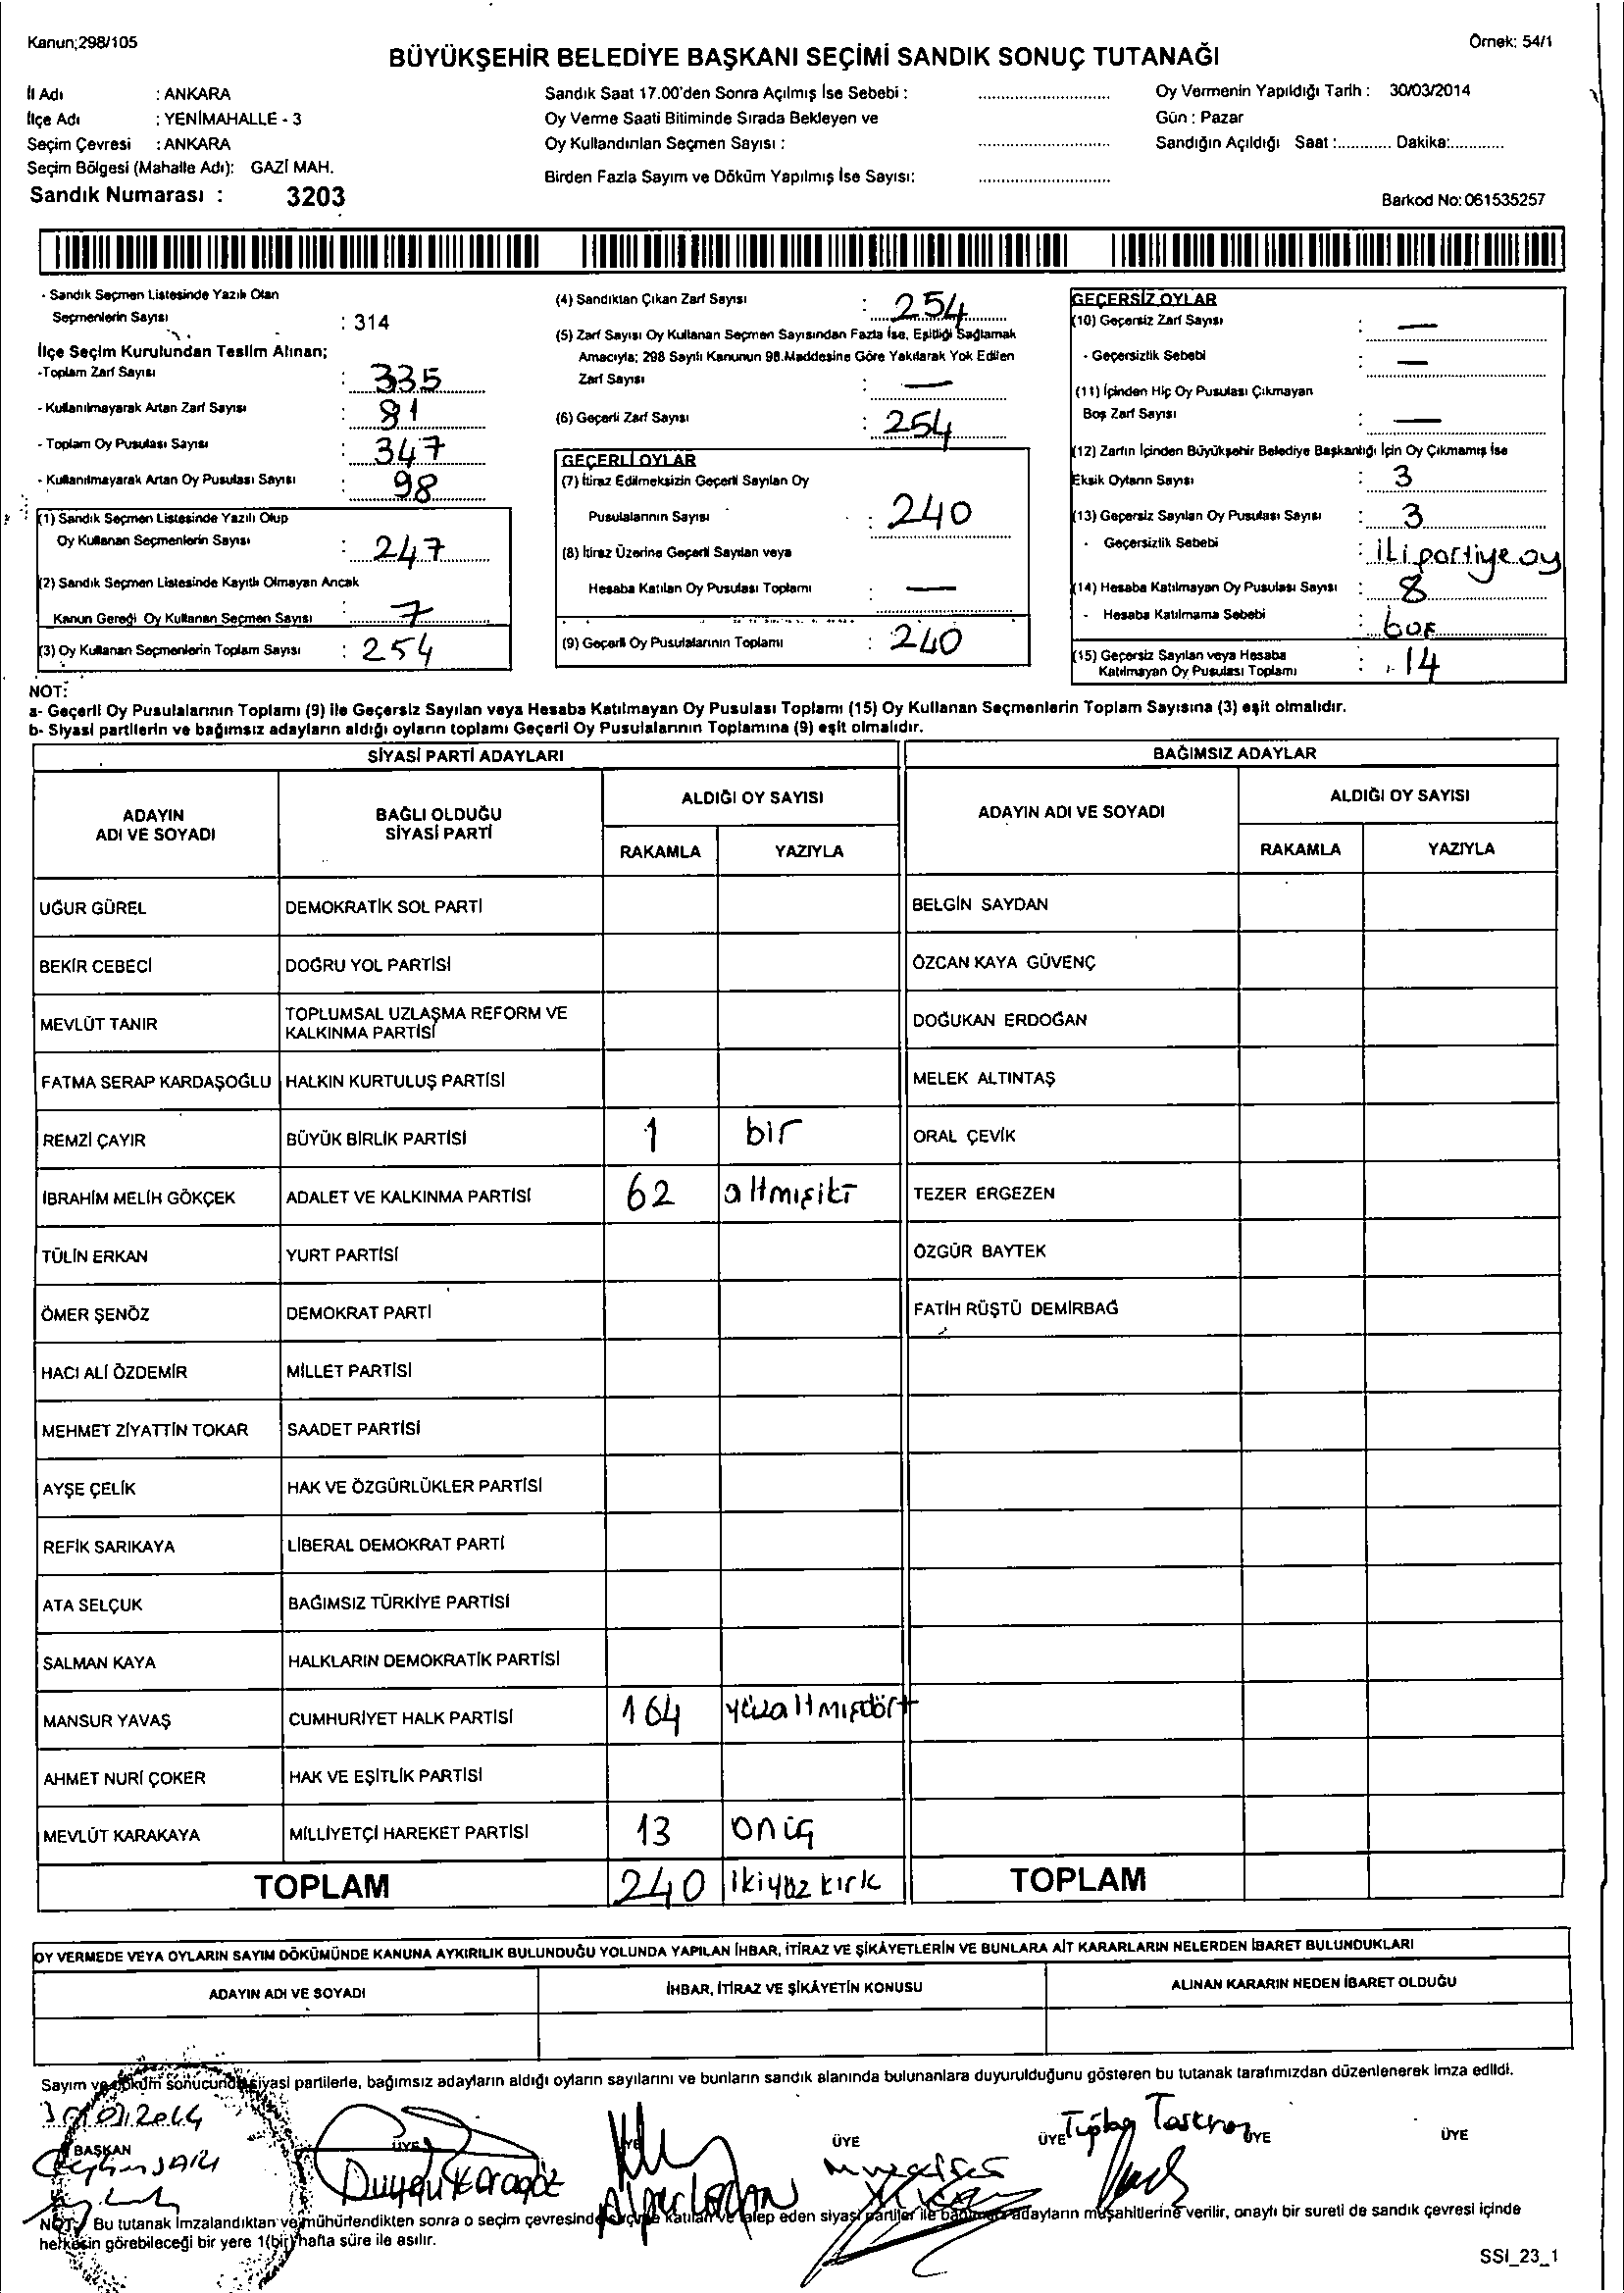 Kanun;298/105
Örnek: 54/1
BÜYÜKŞEHİR BELEDİYE BAŞKANI SEÇİMİ SANDIK SONUÇ TUTANAĞI
İl Adı : ANKARA
İlçe Adı : YENİMAHALLE - 3
Seçim Çevresi : ANKARA
Seçim Bölgesi (Mahalle Adı): GAZİ MAH.
Sandık Numarası : 3203
Sandık Saat 17.00'den Sonra Açılmış İse Sebebi :
Oy Verme Saati Bitiminde Sırada Bekleyen ve
Oy Kullandırılan Seçmen Sayısı :
Birden Fazla Sayım ve Döküm Yapılmış İse Sayısı:
Oy Vermenin Yapıldığı Tarih : 30/03/2014
Gün : Pazar
Sandığın Açıldığı Saat :............ Dakika:............
Barkod No: 061535257
- Sandık Seçmen Listesinde Yazılı Olan
Seçmenlerin Sayısı : 314
İlçe Seçim Kurulundan Teslim Alınan;
-Toplam Zarf Sayısı : 335
- Kullanılmayarak Artan Zarf Sayısı : 81
- Toplam Oy Pusulası Sayısı : 347
- Kullanılmayarak Artan Oy Pusulası Sayısı : 98
(1) Sandık Seçmen Listesinde Yazılı Olup
Oy Kullanan Seçmenlerin Sayısı : 247
(2) Sandık Seçmen Listesinde Kayıtlı Olmayan Ancak
Kanun Gereği Oy Kullanan Seçmen Sayısı : 7
(3) Oy Kullanan Seçmenlerin Toplam Sayısı : 254
(4) Sandıktan Çıkan Zarf Sayısı : 254
(5) Zarf Sayısı Oy Kullanan Seçmen Sayısından Fazla İse, Eşitliği Sağlamak
Amacıyla; 298 Sayılı Kanunun 98.Maddesine Göre Yakılarak Yok Edilen
Zarf Sayısı : —
(6) Geçerli Zarf Sayısı : 254
GEÇERLİ OYLAR
(7) İtiraz Edilmeksizin Geçerli Sayılan Oy
Pusulalarının Sayısı : 240
(8) İtiraz Üzerine Geçerli Sayılan veya
Hesaba Katılan Oy Pusulası Toplamı : —
(9) Geçerli Oy Pusulalarının Toplamı : 240
GEÇERSİZ OYLAR
(10) Geçersiz Zarf Sayısı : —
- Geçersizlik Sebebi : —
(11) İçinden Hiç Oy Pusulası Çıkmayan
Boş Zarf Sayısı : —
(12) Zarfın İçinden Büyükşehir Belediye Başkanlığı İçin Oy Çıkmamış İse
Eksik Oyların Sayısı : 3
(13) Geçersiz Sayılan Oy Pusulası Sayısı : 3
- Geçersizlik Sebebi : iki partiye oy
(14) Hesaba Katılmayan Oy Pusulası Sayısı : 8
- Hesaba Katılmama Sebebi : boş
(15) Geçersiz Sayılan veya Hesaba
Katılmayan Oy Pusulası Toplamı : 14
NOT:
a- Geçerli Oy Pusulalarının Toplamı (9) ile Geçersiz Sayılan veya Hesaba Katılmayan Oy Pusulası Toplamı (15) Oy Kullanan Seçmenlerin Toplam Sayısına (3) eşit olmalıdır.
b- Siyasi partilerin ve bağımsız adayların aldığı oyların toplamı Geçerli Oy Pusulalarının Toplamına (9) eşit olmalıdır.
SİYASİ PARTİ ADAYLARI
BAĞIMSIZ ADAYLAR
ADAYIN ADI VE SOYADI
BAĞLI OLDUĞU SİYASİ PARTİ
ALDIĞI OY SAYISI
RAKAMLA YAZIYLA
ADAYIN ADI VE SOYADI
ALDIĞI OY SAYISI
RAKAMLA YAZIYLA
UĞUR GÜREL DEMOKRATİK SOL PARTİ BELGİN SAYDAN
BEKİR CEBECİ DOĞRU YOL PARTİSİ ÖZCAN KAYA GÜVENÇ
MEVLÜT TANIR TOPLUMSAL UZLAŞMA REFORM VE KALKINMA PARTİSİ DOĞUKAN ERDOĞAN
FATMA SERAP KARDAŞOĞLU HALKIN KURTULUŞ PARTİSİ MELEK ALTINTAŞ
REMZİ ÇAYIR BÜYÜK BİRLİK PARTİSİ 1 bir ORAL ÇEVİK
İBRAHİM MELİH GÖKÇEK ADALET VE KALKINMA PARTİSİ 62 altmışiki TEZER ERGEZEN
TÜLİN ERKAN YURT PARTİSİ ÖZGÜR BAYTEK
ÖMER ŞENÖZ DEMOKRAT PARTİ FATİH RÜŞTÜ DEMİRBAĞ
HACI ALİ ÖZDEMİR MİLLET PARTİSİ
MEHMET ZİYATTİN TOKAR SAADET PARTİSİ
AYŞE ÇELİK HAK VE ÖZGÜRLÜKLER PARTİSİ
REFİK SARIKAYA LİBERAL DEMOKRAT PARTİ
ATA SELÇUK BAĞIMSIZ TÜRKİYE PARTİSİ
SALMAN KAYA HALKLARIN DEMOKRATİK PARTİSİ
MANSUR YAVAŞ CUMHURİYET HALK PARTİSİ 164 yüzaltmışdört
AHMET NURİ ÇOKER HAK VE EŞİTLİK PARTİSİ
MEVLÜT KARAKAYA MİLLİYETÇİ HAREKET PARTİSİ 13 onüç
TOPLAM 240 ikiyüz kırk TOPLAM
OY VERMEDE VEYA OYLARIN SAYIM DÖKÜMÜNDE KANUNA AYKIRILIK BULUNDUĞU YOLUNDA YAPILAN İHBAR, İTİRAZ VE ŞİKÂYETLERİN VE BUNLARA AİT KARARLARIN NELERDEN İBARET BULUNDUKLARI
ADAYIN ADI VE SOYADI İHBAR, İTİRAZ VE ŞİKÂYETİN KONUSU ALINAN KARARIN NEDEN İBARET OLDUĞU
Sayım ve döküm sonucunda siyasi partilerle, bağımsız adayların aldığı oyların sayılarını ve bunların sandık alanında bulunanlara duyurulduğunu gösteren bu tutanak tarafımızdan düzenlenerek imza edildi.
BAŞKAN ÜYE ÜYE ÜYE ÜYE ÜYE ÜYE
Duygu Karagöz
NOT: Bu tutanak imzalandıktan ve mühürlendikten sonra o seçim çevresinde seçime katılan ve talep eden siyasi partiler ile bağımsız adayların müşahitlerine verilir, onaylı bir sureti de sandık çevresi içinde
herkesin görebileceği bir yere 1(bir) hafta süre ile asılır.
SSI_23_1